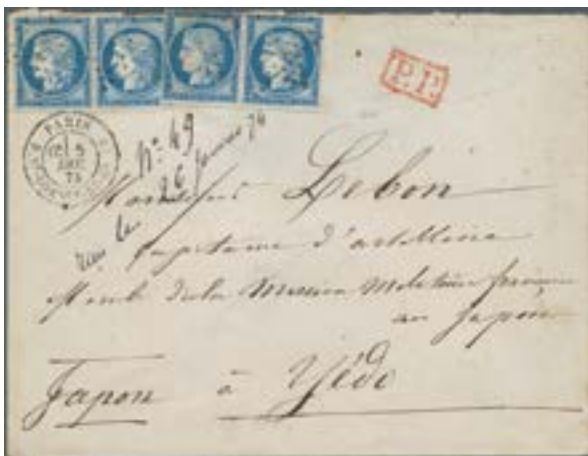 P.P.
PARIS
5
N° 49
Monsieur Lebon
Capitaine d'artillerie
Membre de la Mission Militaire française
au Japon
Japon à Yédo